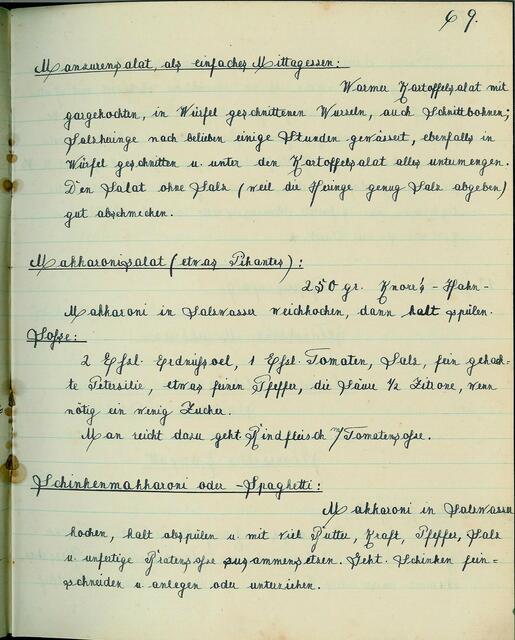 69.
Manzurensalat, als einfaches Mittagessen:
Warmer Kartoffelsalat mit
gargekochten, in Würfel geschnittenen Wurzeln, auch Schnittbohnen;
Salzheringe nach belieben einige Stunden gewässert, ebenfalls in
Würfel geschnitten u. unter den Kartoffelsalat alles untermengen.
Den Salat ohne Salz (weil die Heringe genug Salz abgeben)
gut abschmecken.
Makkaronisalat (etwas Pikantes):
250 gr. Knorr's-Hahn-
Makkaroni in Salzwasser weichkochen, dann kalt spülen.
Soße:
2 Eßl. Erdnußoel, 1 Eßl. Tomaten, Salz, fein gehack-
te Petersilie, etwas feinen Pfeffer, die Säure 1/2 Zitrone, wenn
nötig ein wenig Zucker.
Man reicht dazu geht. Rindfleisch m/Tomatensoße.
Schinkenmakkaroni oder -Spaghetti:
Makkaroni in Salzwasser
kochen, kalt abspülen u. mit viel Butter, Kraft, Pfeffer, Salz
u. unfertige Bratensoße zusammensetzen. Geht. Schinken fein-
schneiden u. anlegen oder unterziehen.